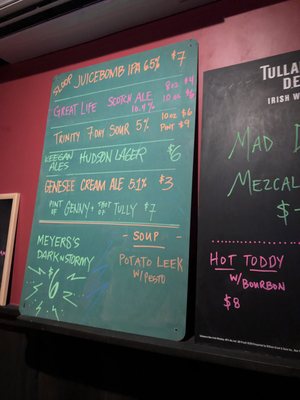 SLOOP JUICEBOMB IPA 6.5% $7
GREAT LIFE SCOTCH ALE 10.4%
8oz $4
10oz $6
TRINITY 7 DAY SOUR 5%
10oz $6
PINT $9
KEEGAN ALES HUDSON LAGER $6
GENESEE CREAM ALE 5.1% $3
PINT OF GENNY + SHOT OF TULLY $7
MEYERS'S
DARK N STORMY
$6
- SOUP -
POTATO LEEK
W/ PESTO
TULLA
D.E
IRISH W
MAD
MEZCAL
$
HOT TODDY
W/ BOURBON
$8